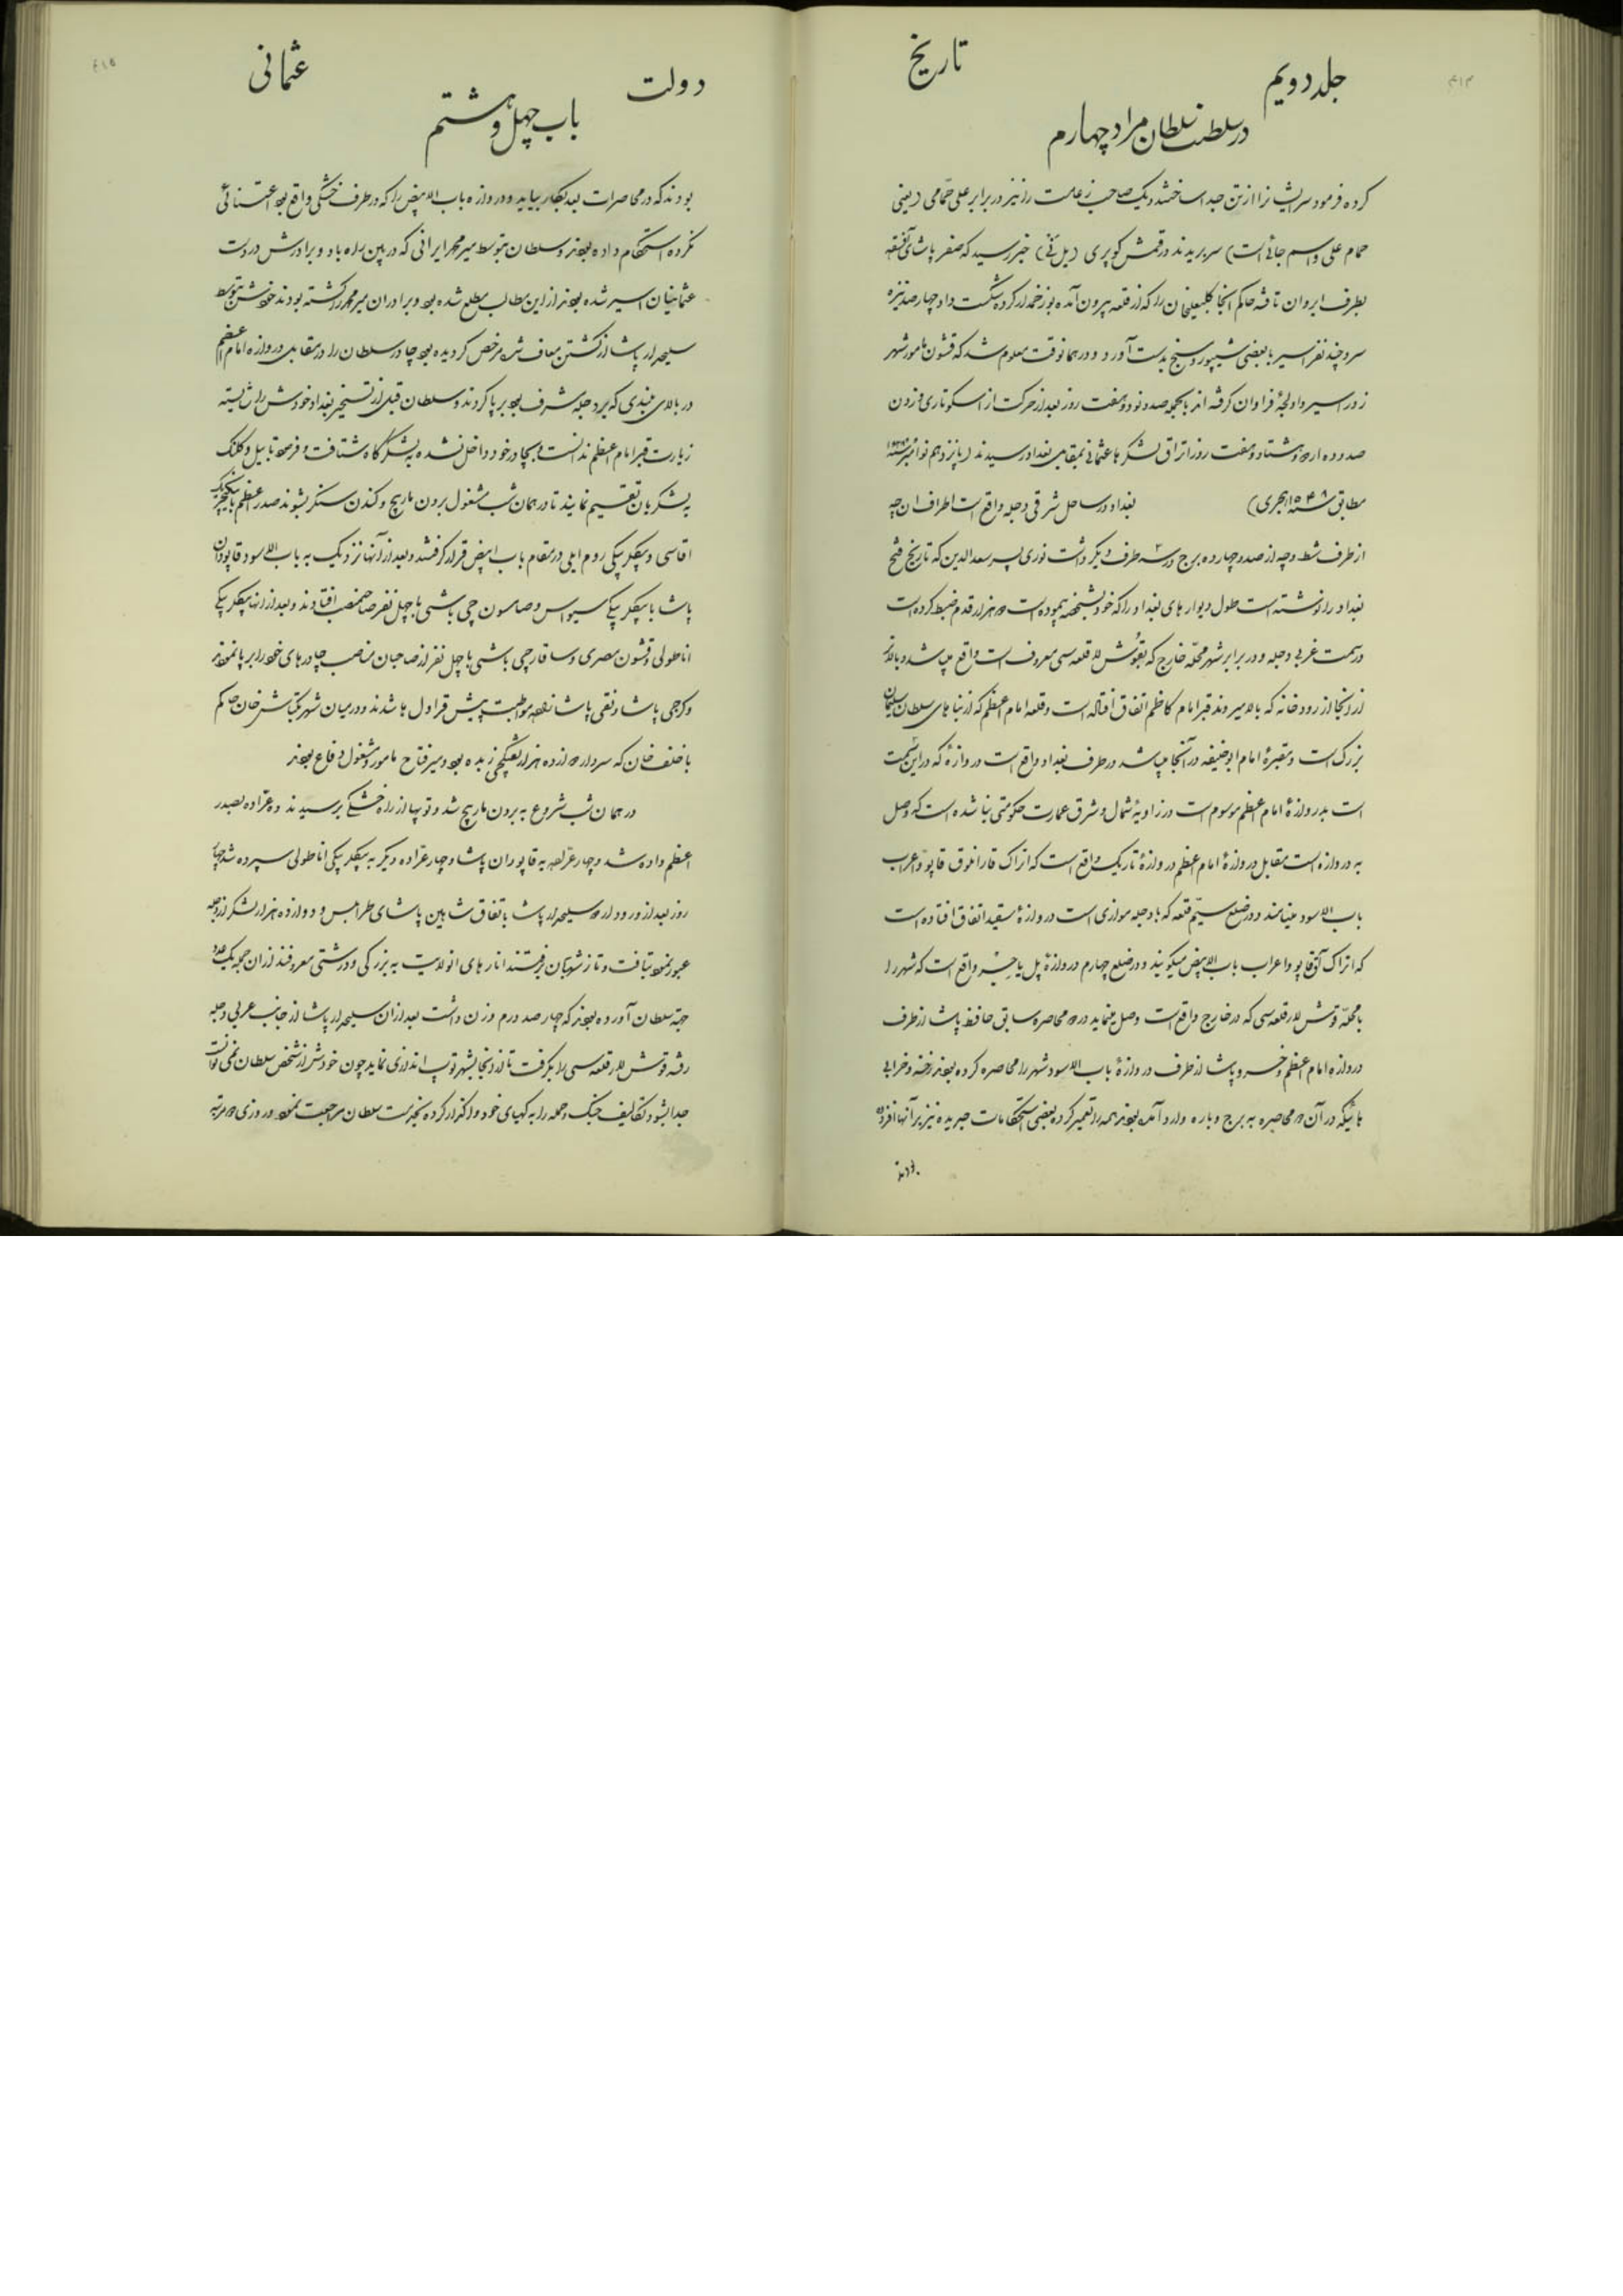 ۴۱۴
جلد دویم
تاریخ
در سلطنت سلطان مراد چهارم
کرده فرمود سر ایشانرا از تن جدا ساختند و یک صاحب زعامت را نیز در برابر علی حمامی (یعنی
حمام علی و اسم جائی است) سر بریدند در قمش کوپری (پل نی) خبر رسید که صفر پاشای
بطرف ایروان تاخته حاکم آنجا کلبعلیخان را که از قلعه بیرون آمده بود زخمدار کرده شکست داد و چهار صد نیزه
سر و چند نفر اسیر با بعضی شیپور و سنج بدست آورد و در همانوقت معلوم شد که قشون مامور شهر
زور اسیر و اولجهٔ فراوان گرفته اند بالجمله صد و نود و هفت روز بعد از حرکت از اسکوتاری و زدن
صد و ده اردو و هشتاد و هفت روز اتراق لشکرها عثمانی بمقابل بغداد رسیدند (پانزدهم نوامبر
مطابق سنه ۱۰۴۸ هجری) بغداد در ساحل شرقی دجله واقع است اطراف آن چه
از طرف شط و چه از صد و چهارده برج در سه طرف دیگر داشت نوری پسر سعدالدین که تاریخ فتح
بغداد را نوشته است طول دیوارهای بغداد را که خود بشخصه پیموده است هزار قدم ضبط کرده است
در سمت غربی دجله و در برابر شهر محله خارج که بقوش لار قلعه سی معروف است واقع میباشد و بالاتر
از اینجا از رودخانه که بالا میروند قبر امام کاظم اتفاق افتاده است و قلعه امام اعظم که از بناهای سلطان سلیمان
بزرگ است و مقبرهٔ امام ابوحنیفه در آنجا میباشد در طرف بغداد واقع است دروازهٔ که در این سمت
است بدروازهٔ امام اعظم موسوم است در زاویهٔ شمال و شرق عمارت حکومتی بنا شده است که وصل
به دروازه است مقابل دروازهٔ امام اعظم دروازهٔ تاریک واقع است که اتراک قارانلوق قاپو و اعراب
باب الاسود مینامند و در ضلع سیّم قلعه که با دجله موازی است دروازهٔ سفید اتفاق افتاده است
که اتراک آق قاپو و اعراب باب الابیض میگویند و در ضلع چهارم دروازهٔ پل یا جسر واقع است که شهر را
با محلهٔ قوش لار قلعه سی که در خارج واقع است وصل مینماید در دو محاصره سابق حافظ پاشا از طرف
دروازه امام اعظم و خسرو پاشا از طرف دروازهٔ باب الاسود شهر را محاصره کرده بودند رخنه و خرابی
هائیکه در آن دو محاصره به برج و باره وارد آمده بود همه را تعمیر کرده بعضی استحکامات جدیده نیز بر آنها افزوده
بودند
٤١٥
دولت
عثمانی
باب چهل و هشتم
بودند که در محاصرات بعد بکار بیاید و دروازه باب الابیض را که در طرف خشکی واقع بود اعتنائی
نکرده استحکام داده بودند و سلطان بتوسط میر محمد ایرانی که در بین راه با دو برادرش در دست
عثمانیان اسیر شده بودند از این مطالب مطلع شده بود و برادران میر محمد را کشته بودند خودش بتوسط
سلحدار پاشا از کشتن معاف شده مرخص گردیده بود چادر سلطان را در مقابل دروازه امام اعظم
در بالای بلندی که بر دجله مشرف بود بر پا کردند و سلطان قبل از تسخیر بغداد خودش را شایسته
زیارت قبر امام اعظم ندانست و بچادر خود داخل نشده به لشکرگاه شتافت و فرمود تا بیل و کلنگ
به لشکریان تقسیم نمایند تا در همان شب مشغول بردن مارپیچ و کندن سنگر بشوند صدر اعظم با ینگیچری
آقاسی و بیگلر بیگی روم ایلی در مقام باب ابیض قرار گرفتند و بعد از آنها نزدیک به باب الاسود قاپودان
پاشا با بیگلر بیگی سیواس و صامسون چی باشی با چهل نفر صاحبمنصب افتادند و بعد از آنها بیگلر بیگی
اناطولی و قشون مصری و ساقارچی باشی با چهل نفر از صاحبان مناصب چادرهای خود را بر پا نمودند
و گرجی پاشا و نقی پاشا زاده مواظب پیش قراولها شدند و در میان شهر بکتاش خان حاکم
با خلف خان که سردار دوازده هزار تفنگچی زبده بود و میر فتاح مامور و مشغول دفاع بودند
در همان شب شروع به بردن مارپیچ شد و توپها از راه خشکی برسیدند ده عراده بصدر
اعظم داده شد و چهار عراده به قاپودان پاشا و چهار عراده دیگر به بیگلر بیگی اناطولی سپرده شد چهار
روز بعد از ورود اردو سلحدار پاشا باتفاق شاهین پاشای طرابلس و دوازده هزار لشکر از دجله
عبور نموده شتافت و تا ز شهربان برفتند انارهای آنولایت به بزرگی و درشتی معروفند از آن جمله یک عدد
جهت سلطان آورده بودند که چهار صد درم وزن داشت بعد از آن سلحدار پاشا از جانب غربی دجله
رفته قوش لار قلعه سی را بگرفت تا از آنجا بشهر توپ اندازی نماید چون خودش از شخص سلطان نمی توانست
جدا بشود تکالیف جنگ و حمله را به کهیای خود واگذار کرده بخدمت سلطان مراجعت نمود و روزی دو مرتبه